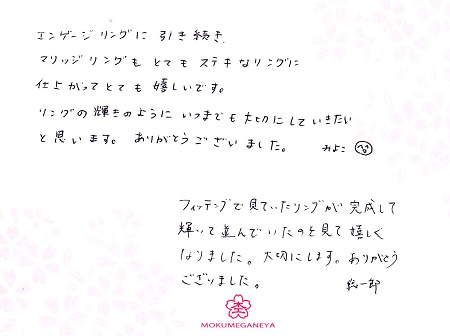 エンゲージリングに引き続き、
マリッジリングもとてもステキなリングに
仕上がってとても嬉しいです。
リングの輝きのようにいつまでも大切にしていきたい
と思います。ありがとうございました。 みよこ
フィッテングで見ていたリングが完成して
輝いて並んでいたのを見て嬉しく
なりました。大切にします。ありがとう
ございました。 総一郎
木
MOKUMEGANEYA